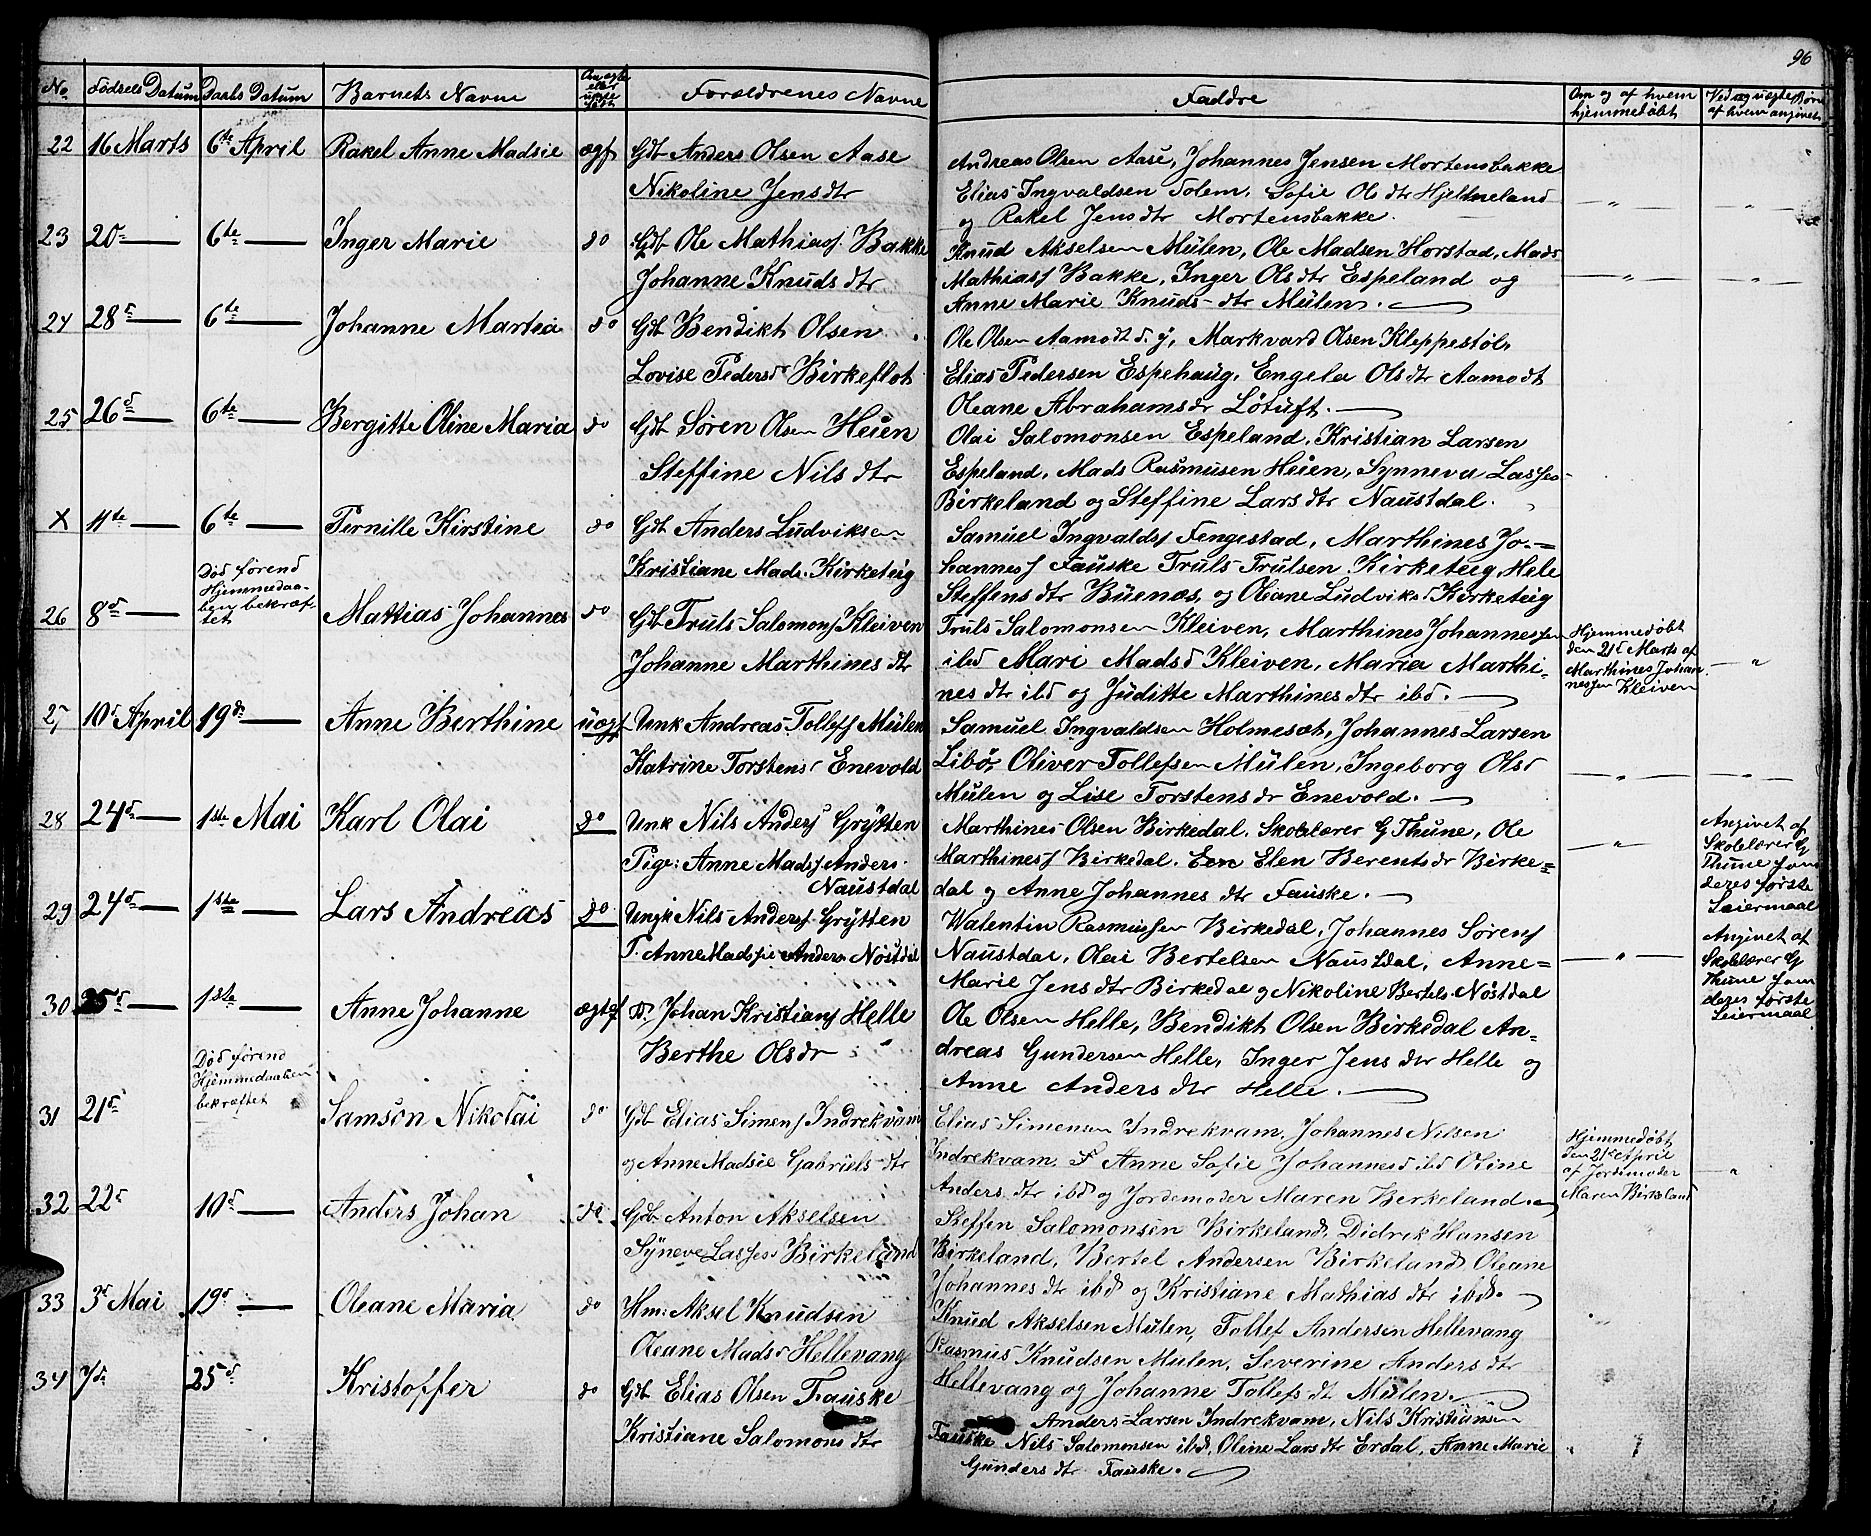 96
No. Fødsels Datum Daabs Datum Barnets Navne Om ægte eller uægte født Forældrenes Navne Faddre Om og af hvem hjemmedøbt Ved uægte Børn af hvem angivet
22 16 Marts 6te April Rakel Anne Madsie ægt Gdt Anders Olsen Aase
Nikoline Jensdtr
Andreas Olsen Aase, Johannes Jensen Mortensbakke
Elias Ingvaldsen Solem, Sofie Ols dtr Hjelmeland
og Rakel Jens dtr Mortensbakke.
23 20 6te Inger Marie do Gdb Ole Mathiass Bakke
Johanne Knuds dtr
Knud Akselsen Mülen, Ole Madsen Horstad, Mads
Mathiass Bakke, Inger Ols dtr Espeland og
Anne Marie Knuds dtr Mülen.
24 28 6te Johanne Martea do Gdt Bendikt Olsen
Lovise Pedersd Birkeflot
Ole Olsen Aamodt d. y, Markvard Olsen Kleppestøl,
Elias Pedersen Espehaug, Engela Ols dtr Aamodt
Oleane Abrahamsdr Løtuft.
25 26 6te Bergitte Oline Maria do Gdt Søren Olsen Heien
Steffine Nils dtr
Olai Salomonsen Espeland, Kristian Larsen
Espeland, Mads Rasmusen Heien, Synneva Lasses
Birkeland og Steffine Lars dtr Naustdal.
X 11te 6te Pernille Kirstine do Gdt Anders Ludviksen
Kristiane Mads. Kirketeig
Samuel Ingvalds Fengestad, Marthines Jo-
hanness Fauske Truls Trulsen Kirketeig, Hele
Steffens dtr Büenæs, og Oleane Ludviksd Kirketeig
Død førend
Hjemmedaa-
ben bekræf-
tet
26 8d Mattias Johannes do Gdb Truls Salomons Kleiven
Johanne Marthines dtr
Truls Salomonsen Kleiven, Marthines Johannessen
ibd Mari Madsd Kleiven, Maria Marthi-
nes dtr ibd og Juditte Marthines dtr ibd.
Hjemmedøbt
den 21d Marts af
Marthines Johan
nessen Kleiven
27 10d April 19d Anne Berthine uægt Unk Andreas Tollefs Mülen
Katrine Torstens Enevold
Samuel Ingvaldsen Holmesæt, Johannes Larsen
Libø, Oliver Tollefsen Mülen, Ingeborg Olsd
Mülen og Lise Torstensdr Enevold.
28 24d 1ste Mai Karl Olai do Unk Nils Anders Grytten
Pige: Anne Mads Anders.
Naustdal
Marthines Olsen Birkedal, Skolelærer G Thune, Ole
Marthiness Birkedal. Elen Berentsdr Birke=
dal og Anne Johannes dtr Fauske.
Angivet af
Skolelærer G
Thune som
deres første
Leiermaal
29 24d 1ste Lars Andreas do Ungk Nils Anders Grytten
P. Anne Madsie Anders Nøstdal
Walentin Rasmussen Birkedal, Johannes Sørens
Naustdal, Olai Bertelsen Naustdal, Anne=
Marie Jens dtr Birkedal og Nikoline Bertels. Nøstdal
Angivet af
Skolelærer G
Thune som
deres første
Leiermaal
30 25d 1ste Anne Johanne ægte Johan Kristians Helle
Berthe Olsdr
Ole Olsen Helle, Bendikt Olsen Birkedal An-
dreas Gundersen Helle, Inger Jens dtr Helle og
Anne Anders dtr Helle.
Død førend
Hjemmedaaben
bekræftet
31 21d Samson Nikolai do Gdb Elias Simens Indrekvam
og Anne Madsie Gabriels dtr
Elias Simensen Indrekvam, Johannes Nilsen
Indrekvam. Anne Sofie Johannesd ibd Oline
Anders dtr ibd og Jordemoder Maren Berkeland.
Hjemmedøbt
den 21de April
af Jordemoder
Maren Birkeland
32 22d 10d Anders Johan do Gdb Anton Akselsen
Syneve Lasses Birkeland
Steffen Salomonsen Birkeland, Didrek Hansen
Birkeland, Bertel Andersen Birkeland Oleane
Johannes dtr ibd og Kristiane Mathias dtr ibd.
33 3d Mai 19d Oleane Maria do Hm: Aksel Knudsen
Oleane Madsd Hellevang
Knud Akselsen Mülen, Tollef Andersen Hellevang
Rasmus Knudsen Mulen, Severine Anders dtr
Hellevang og Johanne Tollefs dt Mulen.
34 7de 25d Kristoffer do Gdt Elias Olsen Fauske
Kristiane Salomons dtr
Anders Larsen Indrekvam, Nils Kristiansen
Fauske Nils Salomonsen ibd, Oline Lars dtr Erdal, Anne Marie
Gunders dtr Fauske.